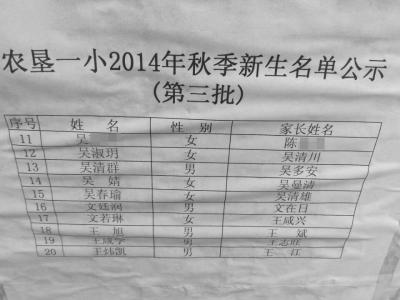 农垦一小2014年秋季新生名单公示
(第三批)
序号 姓 名 性 别 家长姓名
11 吴 女 陈
12 吴淑玥 女 吴清川
13 吴清群 男 吴多安
14 吴 婧 女 吴曼清
15 吴春瑜 女 吴清雄
16 文廷润 男 文在日
17 文若琳 女 王咸兴
18 王 旭 男 王 斌
19 男
20 王炜凯 男 王 江